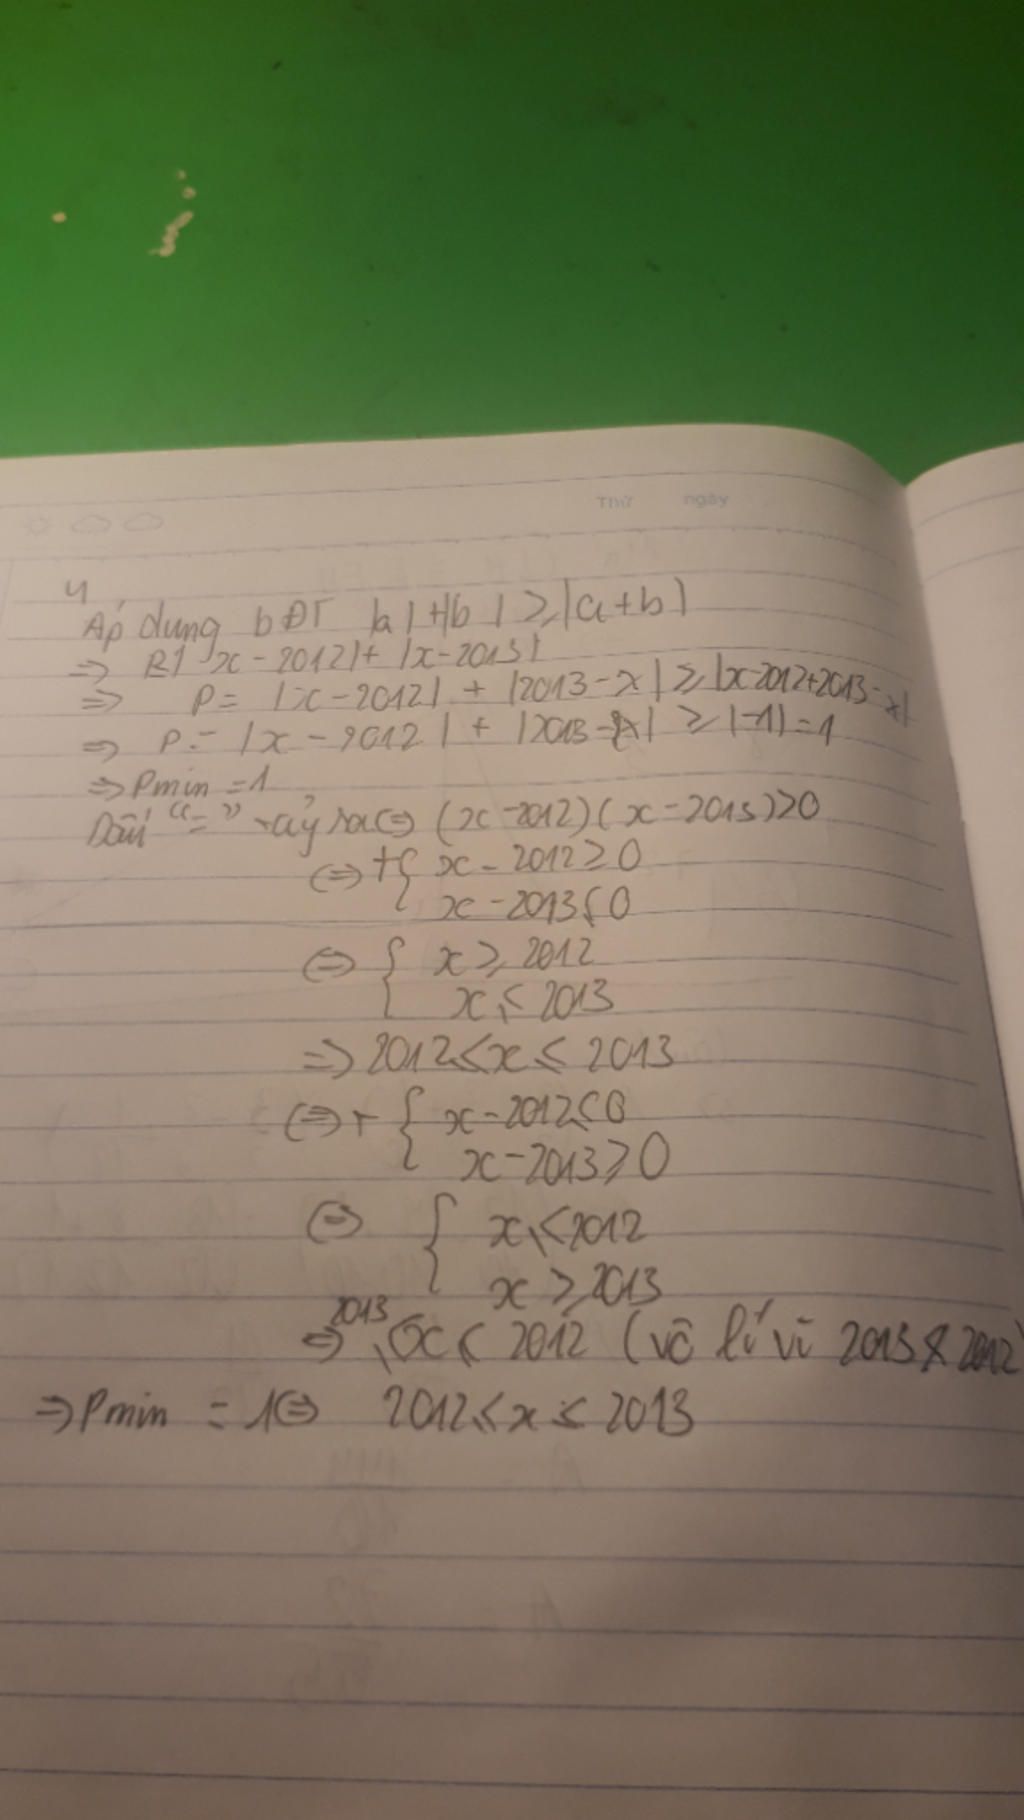 Thứ ngày
4
Áp dụng bĐT |a|+|b| ≥ |a+b|
=> P=| x-2012|+ |x-2013|
=> P= |x-2012| + |2013-x| ≥ |x-2012+2013-x|
=> P= |x-2012| + |2013-x| ≥ |-1|=1
=> Pmin =1
Dấu "=" xảy ra <=> (x-2012)(x-2013)≥0
<=> +{ x-2012≥0
x-2013≤0
<=> { x≥2012
x≤2013
=> 2012≤x≤2013
<=> + { x-2012≤0
x-2013≥0
<=> { x≤2012
x≥2013
=> 2013≤x≤2012 (vô lí vì 2013 2012)
=> Pmin =1<=> 2012≤x≤2013